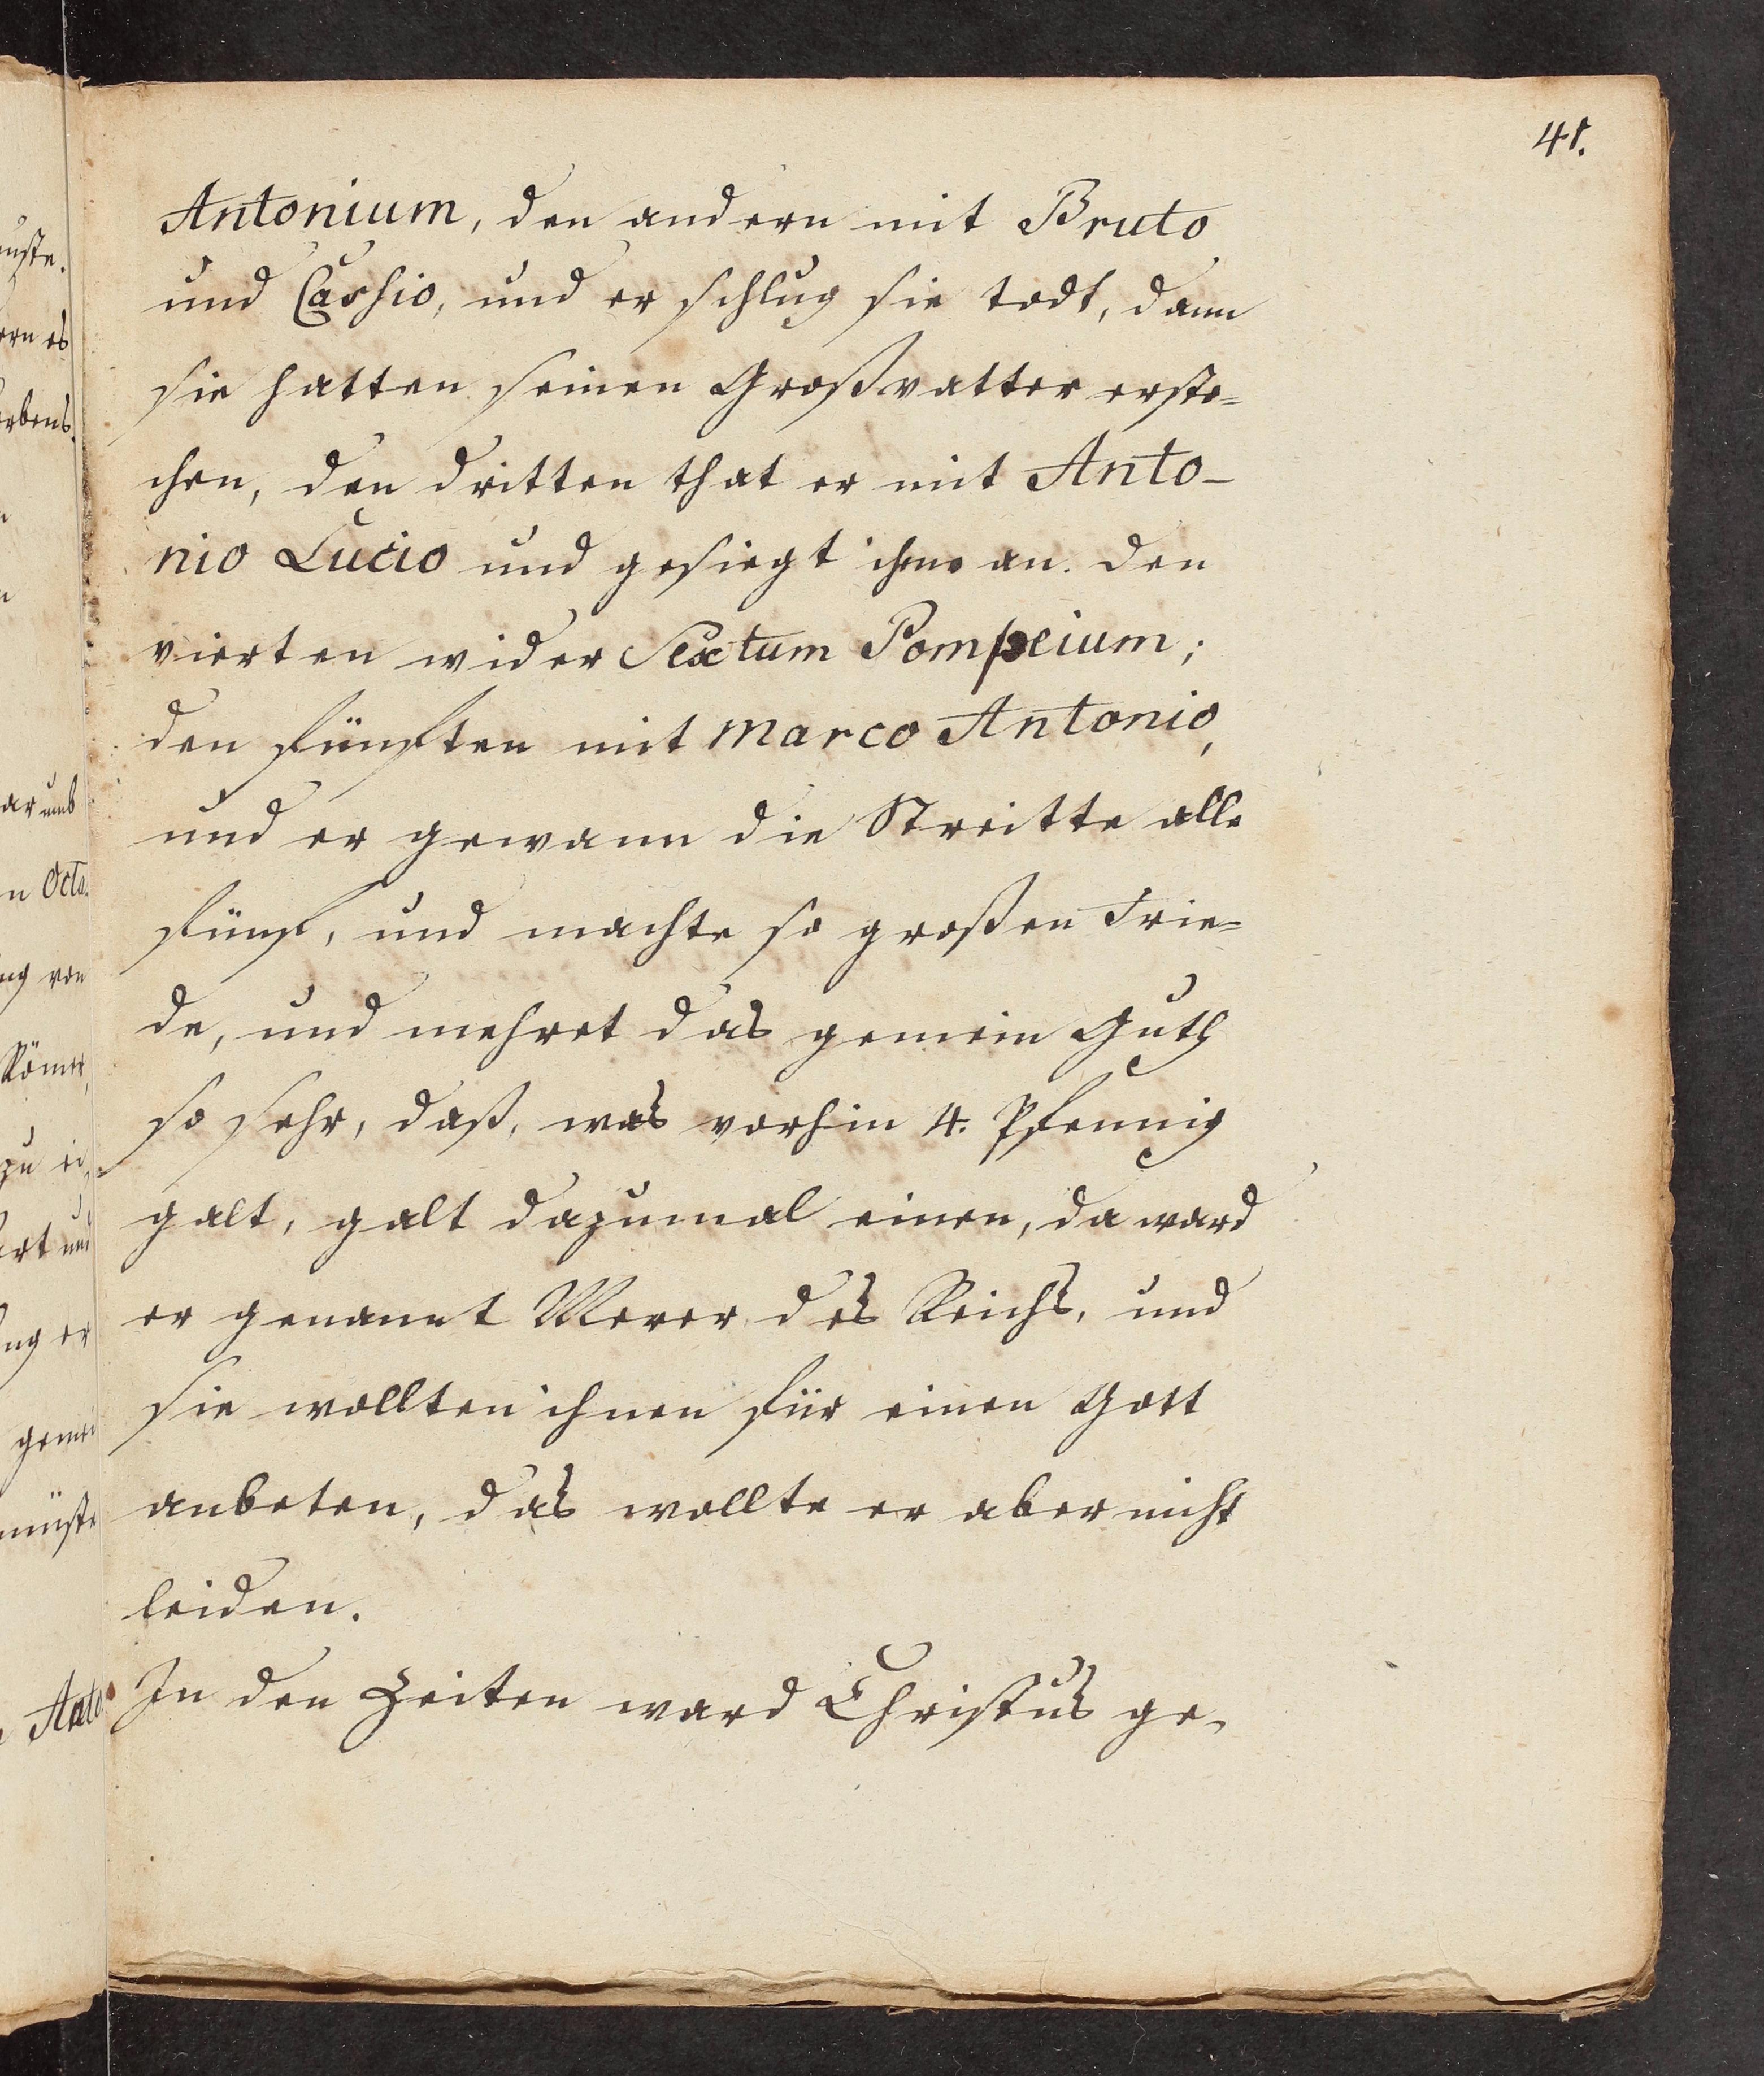 41.
Antonium, den andern mit Bruto
und Cassio, und er schlug sie todt, dann
sie hatten seinen Großvatter erste=
chen, den dritten that er mit Anto-
nio Lucio und gesiegt ihme an. den
vierten wider Sextum Pompeium;
den fünften mit Marco Antonio,
und er gewann die Streitte alle
fünf, und machte so großen Frie=
de, und mehret das gemein Guth
so sehr, daß, was vorhin 4. Pfennig
galt, galt dazumal einen, da ward
er genannt Merer des Reichs, und
sie wollten ihnen für einen Gott
anbeten, das wollte er aber nicht
leiden.
In den Zeiten ward Christus ge-